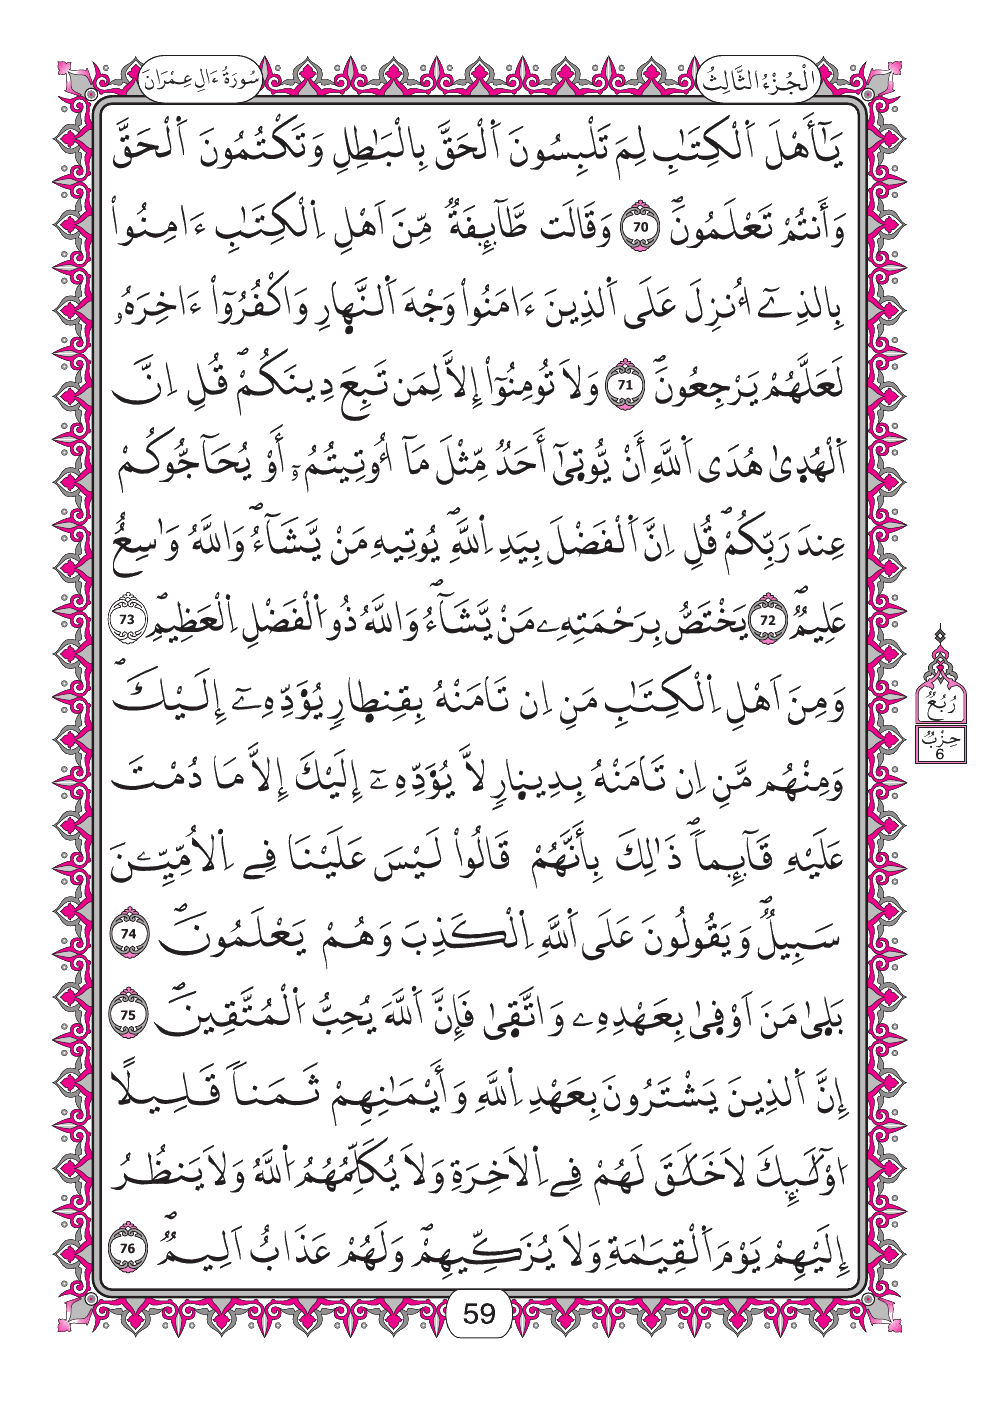 سُورَةُ ءَالِ عِمْرَانَ
الْجُزْءُ الثَّالِثُ
يَٰٓأَهْلَ اَ۬لْكِتَٰبِ لِمَ تَلْبِسُونَ اَ۬لْحَقَّ بِالْبَٰطِلِ وَتَكْتُمُونَ اَ۬لْحَقَّ
وَأَنتُمْ تَعْلَمُونَۖ 70 وَقَالَت طَّآئِفَةٞ مِّنَ اَهْلِ اِ۬لْكِتَٰبِ ءَامِنُواْ
بِالذِےٓ أُنزِلَ عَلَى اَ۬لذِينَ ءَامَنُواْ وَجْهَ اَ۬لنَّه۪ارِ وَاكْفُرُوٓاْ ءَاخِرَهُۥ
لَعَلَّهُمْ يَرْجِعُونَۖ 71 وَلَا تُومِنُوٓاْ إِلَّا لِمَن تَبِعَ دِينَكُمْۖ قُلِ اِنَّ
اَ۬لْهُد۪ىٰ هُدَى اَ۬للَّهِ أَنْ يُّوت۪ىٰٓ أَحَدٞ مِّثْلَ مَآ أُوتِيتُمُۥٓ أَوْ يُحَآجُّوكُمْ
عِندَ رَبِّكُمْۖ قُلِ اِنَّ اَ۬لْفَضْلَ بِيَدِ اِ۬للَّهِۖ يُوتِيهِ مَنْ يَّشَآءُۖ وَاللَّهُ وَٰسِعٌ
عَلِيمٞۖ 72 يَخْتَصُّ بِرَحْمَتِهِۦ مَنْ يَّشَآءُۖ وَاللَّهُ ذُو اُ۬لْفَضْلِ اِ۬لْعَظِيمِۖ 73
وَمِنَ اَهْلِ اِ۬لْكِتَٰبِ مَنِ اِن تَامَنْهُ بِقِنط۪ارٖ يُؤَدِّهِۦٓ إِلَيْكَۖ
وَمِنْهُم مَّنِ اِن تَامَنْهُ بِدِين۪ارٖ لَّا يُؤَدِّهِۦٓ إِلَيْكَ إِلَّا مَا دُمْتَ
عَلَيْهِ قَآئِماٗۖ ذَٰلِكَ بِأَنَّهُمْ قَالُواْ لَيْسَ عَلَيْنَا فِے اِ۬لُامِّيِّـۧنَ
سَبِيلٞۖ وَيَقُولُونَ عَلَى اَ۬للَّهِ اِ۬لْكَذِبَ وَهُمْ يَعْلَمُونَۖ 74
بَل۪ىٰ مَنَ اَوْف۪ىٰ بِعَهْدِهِۦ وَاتَّق۪ىٰ فَإِنَّ اَ۬للَّهَ يُحِبُّ اُ۬لْمُتَّقِينَۖ 75
إِنَّ اَ۬لذِينَ يَشْتَرُونَ بِعَهْدِ اِ۬للَّهِ وَأَيْمَٰنِهِمْ ثَمَناٗ قَلِيلًا
اُوْلَٰٓئِكَ لَا خَلَٰقَ لَهُمْ فِے اِ۬لَاخِرَةِ وَلَا يُكَلِّمُهُمُ اُ۬للَّهُ وَلَا يَنظُرُ
إِلَيْهِمْ يَوْمَ اَ۬لْقِيَٰمَةِ وَلَا يُزَكِّيهِمْۖ وَلَهُمْ عَذَابٌ اَلِيمٞۖ 76
رُبُعُ
حِزْبٌ
6
59